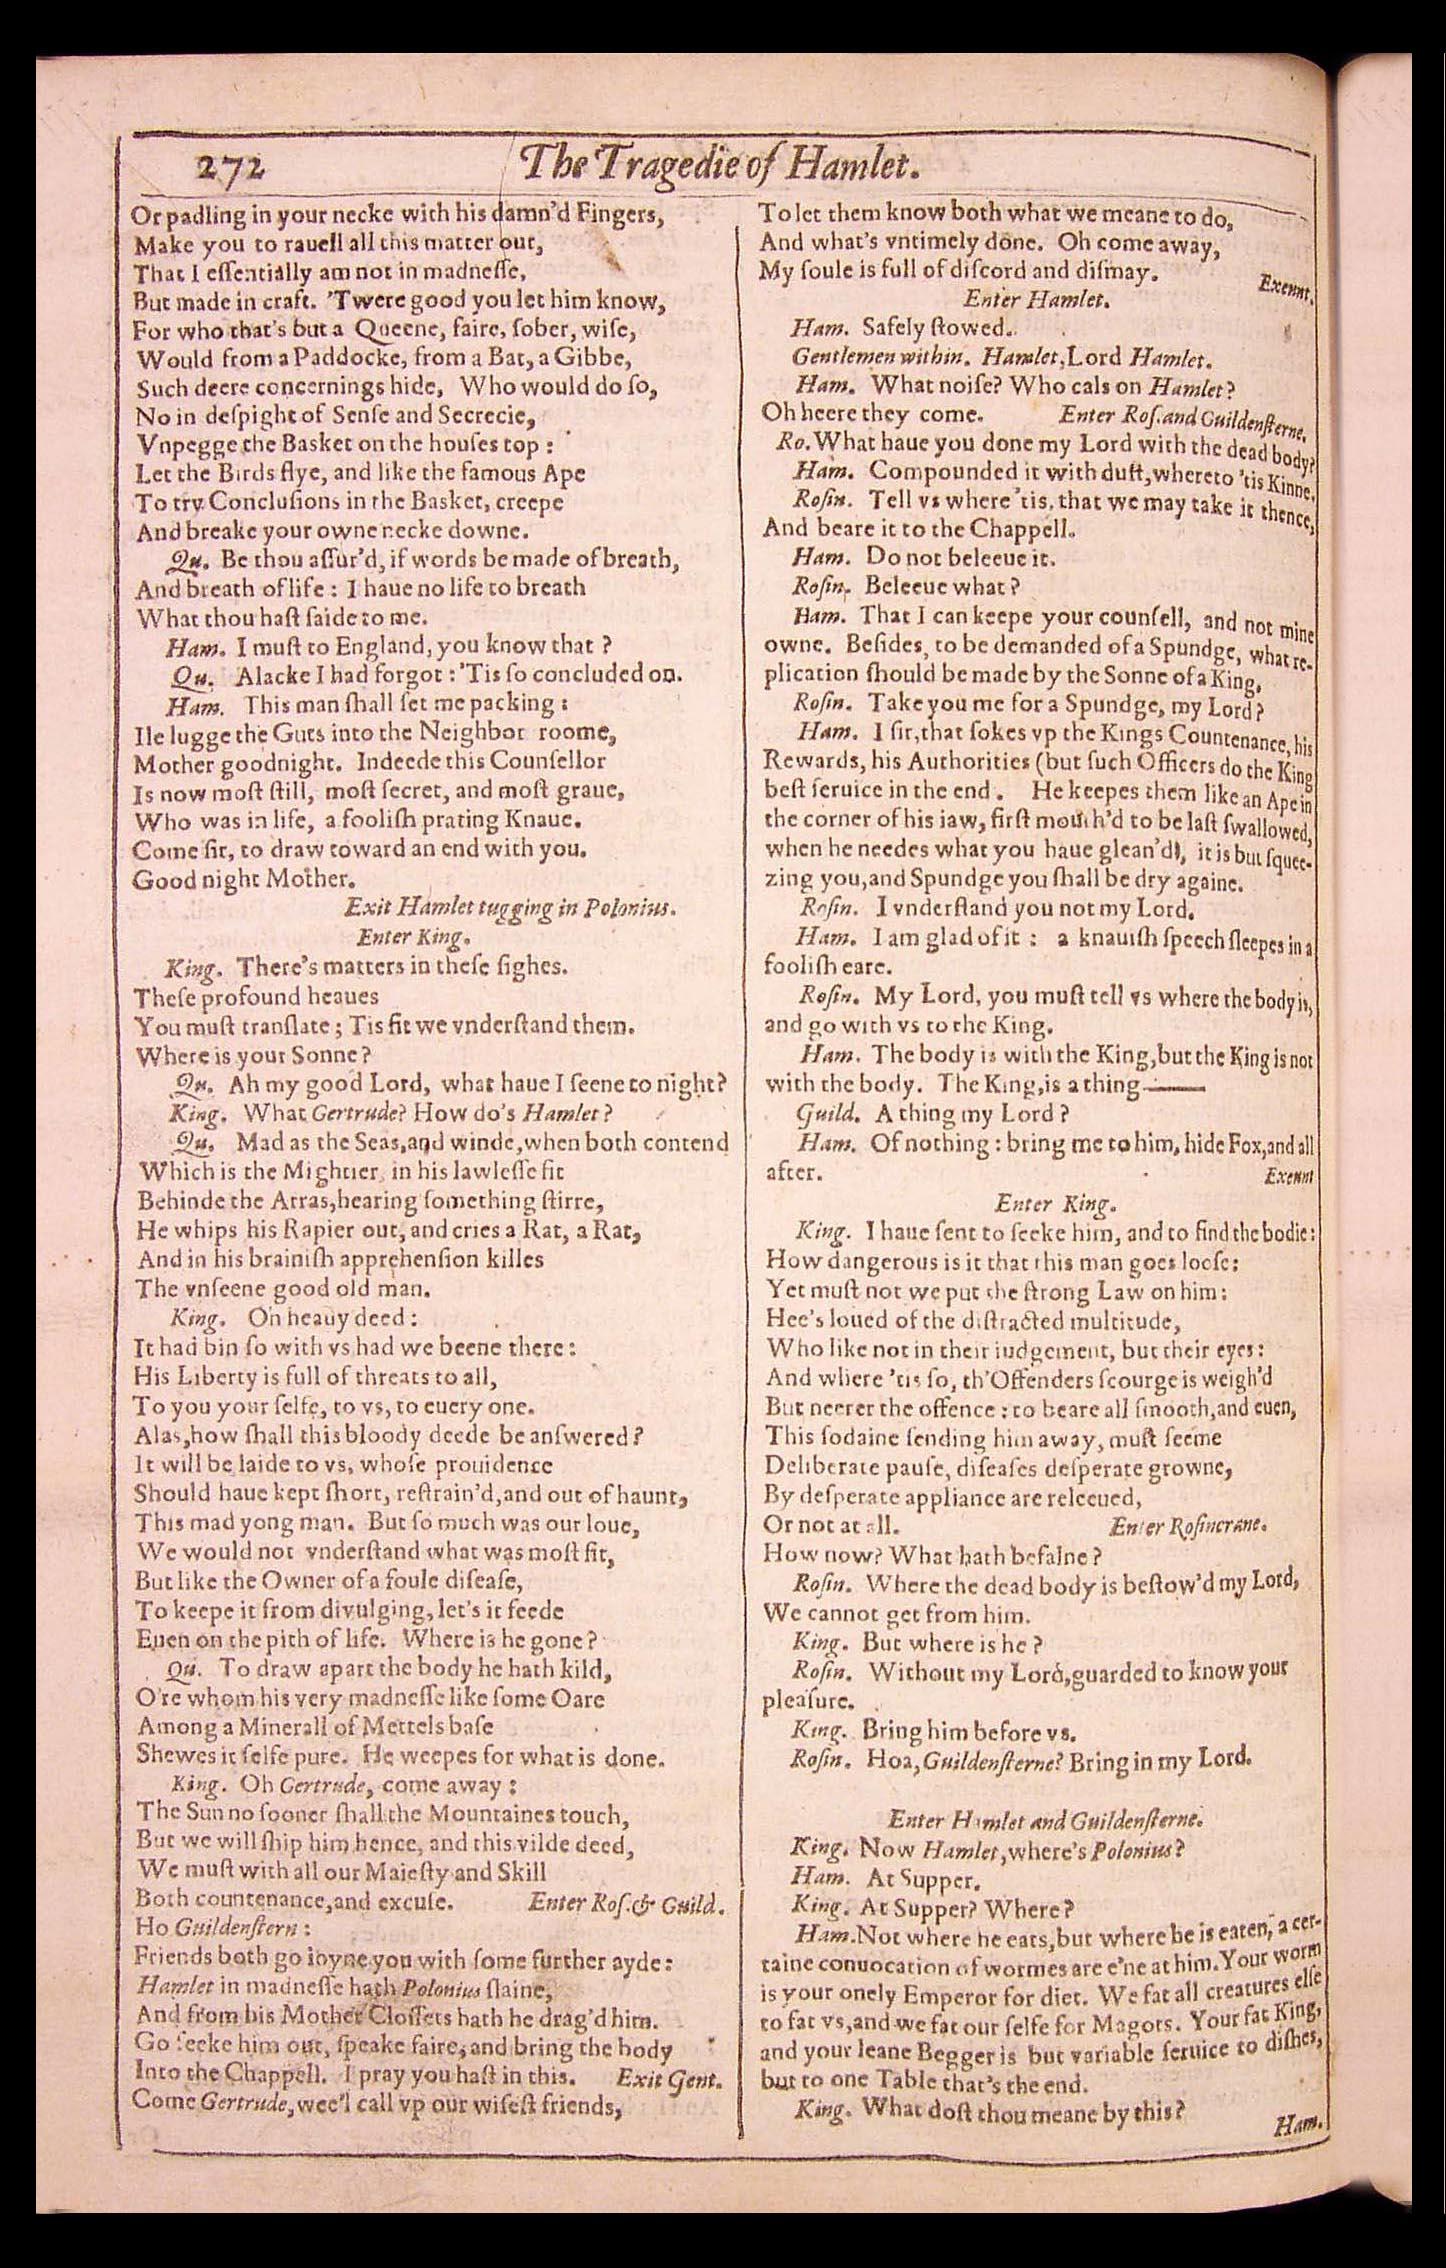 272
The Tragedie of Hamlet.
Or padling in your necke with his damn'd Fingers,
Make you to rauell all this matter out,
That I eſſentially am not in madneſſe,
But made in craft. 'Twere good you let him know,
For who that's but a Queene, faire, ſober, wiſe,
Would from a Paddocke, from a Bat, a Gibbe,
Such deere concernings hide, Who would do ſo,
No in deſpight of Senſe and Secrecie,
Vnpegge the Basket on the houſes top :
Let the Birds flye, and like the famous Ape
To try Concluſions in the Basket, creepe
And breake your owne necke downe.
Qu. Be thou aſſur'd, if words be made of breath,
And breath of life : I haue no life to breath
What thou haſt ſaide to me.
Ham. I muſt to England, you know that ?
Qu. Alacke I had forgot : 'Tis ſo concluded on.
Ham. This man ſhall ſet me packing :
Ile lugge the Guts into the Neighbor roome,
Mother goodnight. Indeede this Counſellor
Is now moſt ſtill, moſt ſecret, and moſt graue,
Who was in life, a fooliſh prating Knaue.
Come ſir, to draw toward an end with you.
Good night Mother.
Exit Hamlet tugging in Polonius.
Enter King.
King. There's matters in theſe ſighes.
Theſe profound heaues
You muſt tranſlate ; Tis fit we vnderſtand them.
Where is your Sonne ?
Qu. Ah my good Lord, what haue I ſeene to night?
King. What Gertrude? How do's Hamlet ?
Qu. Mad as the Seas, and winde, when both contend
Which is the Mightier, in his lawleſſe fit
Behinde the Arras, hearing ſomething ſtirre,
He whips his Rapier out, and cries a Rat, a Rat,
And in his brainiſh apprehenſion killes
The vnſeene good old man.
King. Oh heauy deed :
It had bin ſo with vs had we beene there :
His Liberty is full of threats to all,
To you your ſelfe, to vs, to euery one.
Alas, how ſhall this bloody deede be anſwered ?
It will be laide to vs, whoſe prouidence
Should haue kept ſhort, reſtrain'd, and out of haunt,
This mad yong man. But ſo much was our loue,
We would not vnderſtand what was moſt fit,
But like the Owner of a foule diſeaſe,
To keepe it from divulging, let's it feede
Euen on the pith of life. Where is he gone ?
Qu. To draw apart the body he hath kild,
O're whom his very madneſſe like ſome Oare
Among a Minerall of Mettels baſe
Shewes it ſelfe pure. He weepes for what is done.
King. Oh Gertrude, come away :
The Sun no ſooner ſhall the Mountaines touch,
But we will ſhip him hence, and this vilde deed,
We muſt with all our Maieſty and Skill
Both countenance, and excuſe. Enter Roſ. & Guild.
Ho Guildenſtern :
Friends both go ioyne you with ſome further ayde :
Hamlet in madneſſe hath Polonius ſlaine,
And from his Mother Cloſſets hath he drag'd him.
Go ſeeke him out, ſpeake faire, and bring the body
Into the Chappell. I pray you haſt in this. Exit Gent.
Come Gertrude, wee'l call vp our wiſeſt friends,
To let them know both what we meane to do,
And what's vntimely done. Oh come away,
My ſoule is full of diſcord and diſmay. Exeunt.
Enter Hamlet.
Ham. Safely ſtowed.
Gentlemen within. Hamlet, Lord Hamlet.
Ham. What noiſe? Who cals on Hamlet?
Oh heere they come. Enter Roſ. and Guildenſterne.
Ro. What haue you done my Lord with the dead body?
Ham. Compounded it with duſt, whereto 'tis Kinne.
Roſin. Tell vs where 'tis, that we may take it thence,
And beare it to the Chappell.
Ham. Do not beleeue it.
Roſin. Beleeue what ?
Ham. That I can keepe your counſell, and not mine
owne. Beſides, to be demanded of a Spundge, what re-
plication ſhould be made by the Sonne of a King.
Roſin. Take you me for a Spundge, my Lord?
Ham. I ſir, that ſokes vp the Kings Countenance, his
Rewards, his Authorities (but ſuch Officers do the King
beſt ſeruice in the end . He keepes them like an Ape in
the corner of his iaw, firſt mouth'd to be laſt ſwallowed,
when he needes what you haue glean'd, it is but ſquee-
zing you, and Spundge you ſhall be dry againe.
Roſin. I vnderſtand you not my Lord.
Ham. I am glad of it : a knauiſh ſpeech ſleepes in a
fooliſh eare.
Roſin. My Lord, you muſt tell vs where the body is,
and go with vs to the King.
Ham. The body is with the King, but the King is not
with the body. The King, is a thing——
Guild. A thing my Lord ?
Ham. Of nothing : bring me to him, hide Fox, and all
after. Exeunt
Enter King.
King. I haue ſent to ſeeke him, and to find the bodie :
How dangerous is it that this man goes looſe :
Yet muſt not we put the ſtrong Law on him :
Hee's loued of the diſtracted multitude,
Who like not in their iudgement, but their eyes :
And where 'tis ſo, th'Offenders ſcourge is weigh'd
But neerer the offence : to beare all ſmooth, and euen,
This ſodaine ſending him away, muſt ſeeme
Deliberate pauſe, diſeaſes deſperate growne,
By deſperate appliance are releeued,
Or not at all. Enter Roſincrane.
How now? What hath befalne ?
Roſin. Where the dead body is beſtow'd my Lord,
We cannot get from him.
King. But where is he ?
Roſin. Without my Lord, guarded to know your
pleaſure.
King. Bring him before vs.
Roſin. Hoa, Guildenſterne? Bring in my Lord.
Enter Hamlet and Guildenſterne.
King. Now Hamlet, where's Polonius?
Ham. At Supper.
King. At Supper? Where?
Ham. Not where he eats, but where he is eaten, a cer-
taine conuocation of wormes are e'ne at him. Your worm
is your onely Emperor for diet. We fat all creatures elſe
to fat vs, and we fat our ſelfe for Magots. Your fat King,
and your leane Begger is but variable ſeruice to diſhes,
but to one Table that's the end.
King. What doſt thou meane by this?
Ham.